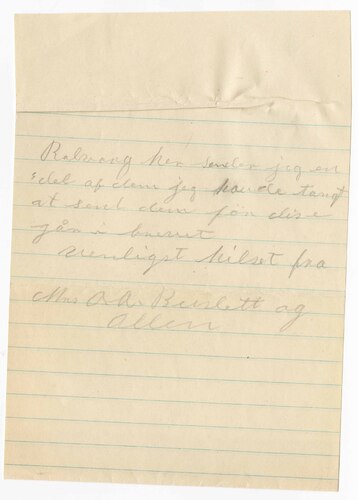 Ralvaag her sender jeg en
del af dem jeg havde tangt
at sent dem før disse
går i brevet
venligst hilset fra
Mrs O.A. Buslett og
Allen